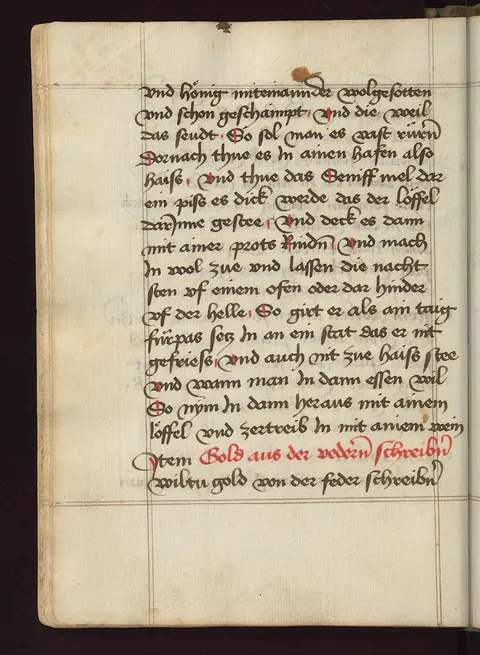 vnd hönig miteinannder wolgesotten
vnd schon geschampt / Vnd die weil
das seudt / So sol man es vast rürn̄
Dornach thue es In ainen hafen also
haiss / Vnd thue das Seniff mel dar
ein piss es dick werde das der löffel
darInne gestee / Vnd deck es dann
mit ainer prots Rindn̄ / Vnd mach
In wol zue vnd lassen die nacht
sten vf einem ofen oder dar hinder
vf der helle / So girt er als ain taig
fürpas setz In an ein stat das er nit
gefriess / Vnd auch nit zue haiss stee
Vnd wann man In dann essen wil
So nym In dann heraus mit ainem
löffel vnd zertreib In mit ainem wein
Item Gold aus der vedern̄ schreibn̄
Wiltu gold von der feder schreibn̄